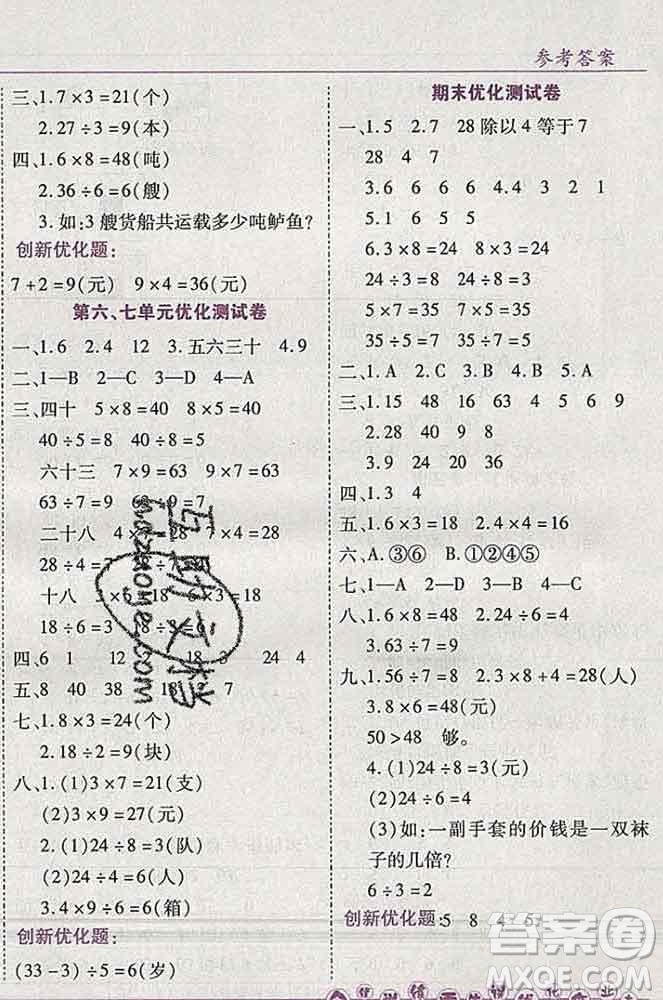 参考答案
三、1.7×3=21(个)
2.27÷3=9(本)
四、1.6×8=48(吨)
2.36÷6=6(艘)
3.如:3艘货船共运载多少吨鲈鱼?
创新优化题:
7+2=9(元) 9×4=36(元)
第六、七单元优化测试卷
一、1.6 2.4 12 3.五六三十 4.9
二、1—B 2—A 3—D 4—C
三、四十 5×8=40 8×5=40
40÷5=8 40÷8=5
六十三 7×9=63 9×7=63
63÷7=9 63÷9=7
二十八 4×7=28 7×4=28
28÷4=7 28÷7=4
十八 3×6=18 6×3=18
18÷6=3 18÷3=6
四、6 1 12 3 24 4
五、8 40 38 12 7
七、1.8×3=24(个)
2.18÷2=9(块)
八、1.(1)3×7=21(支)
(2)3×9=27(元)
2.(1)24÷8=3(队)
(2)24÷4=6(人)
3.4×9=36 36÷6=6(箱)
创新优化题:
(33-3)÷5=6(岁)
期末优化测试卷
一、1.5 2.7 28除以4等于7
28 4 7
3.6 6 6 6 4.4 24
5.1 6 5 5
6.3×8=24 8×3=24
24÷3=8 24÷8=3
5×7=35 7×5=35
35÷5=7 35÷7=5
二、1.A 2.C 3.B 4.B 5.A
三、1.15 48 16 63 4 5 6
2.28 40
3.9 24 20 6 36 4
四、1.3 4
五、1.6×3=18 2.4×4=16
六、A.③⑥ B.①②④⑤
七、1—C 2—A 3—D 4—B
八、1.6×8=48 2.36÷9=4
3.63÷7=9
九、1.56÷7=8 2.3×8+4=28(人)
3.8×6=48(元)
50>48 够。
4.(1)24÷8=3(元)
(2)24÷6=4
(3)如:一副手套的价钱是一双袜
子的几倍?
6÷3=2
创新优化题:5 8 4 5
互助文档
hdzuoye.com
答案圈
MXQE.COM